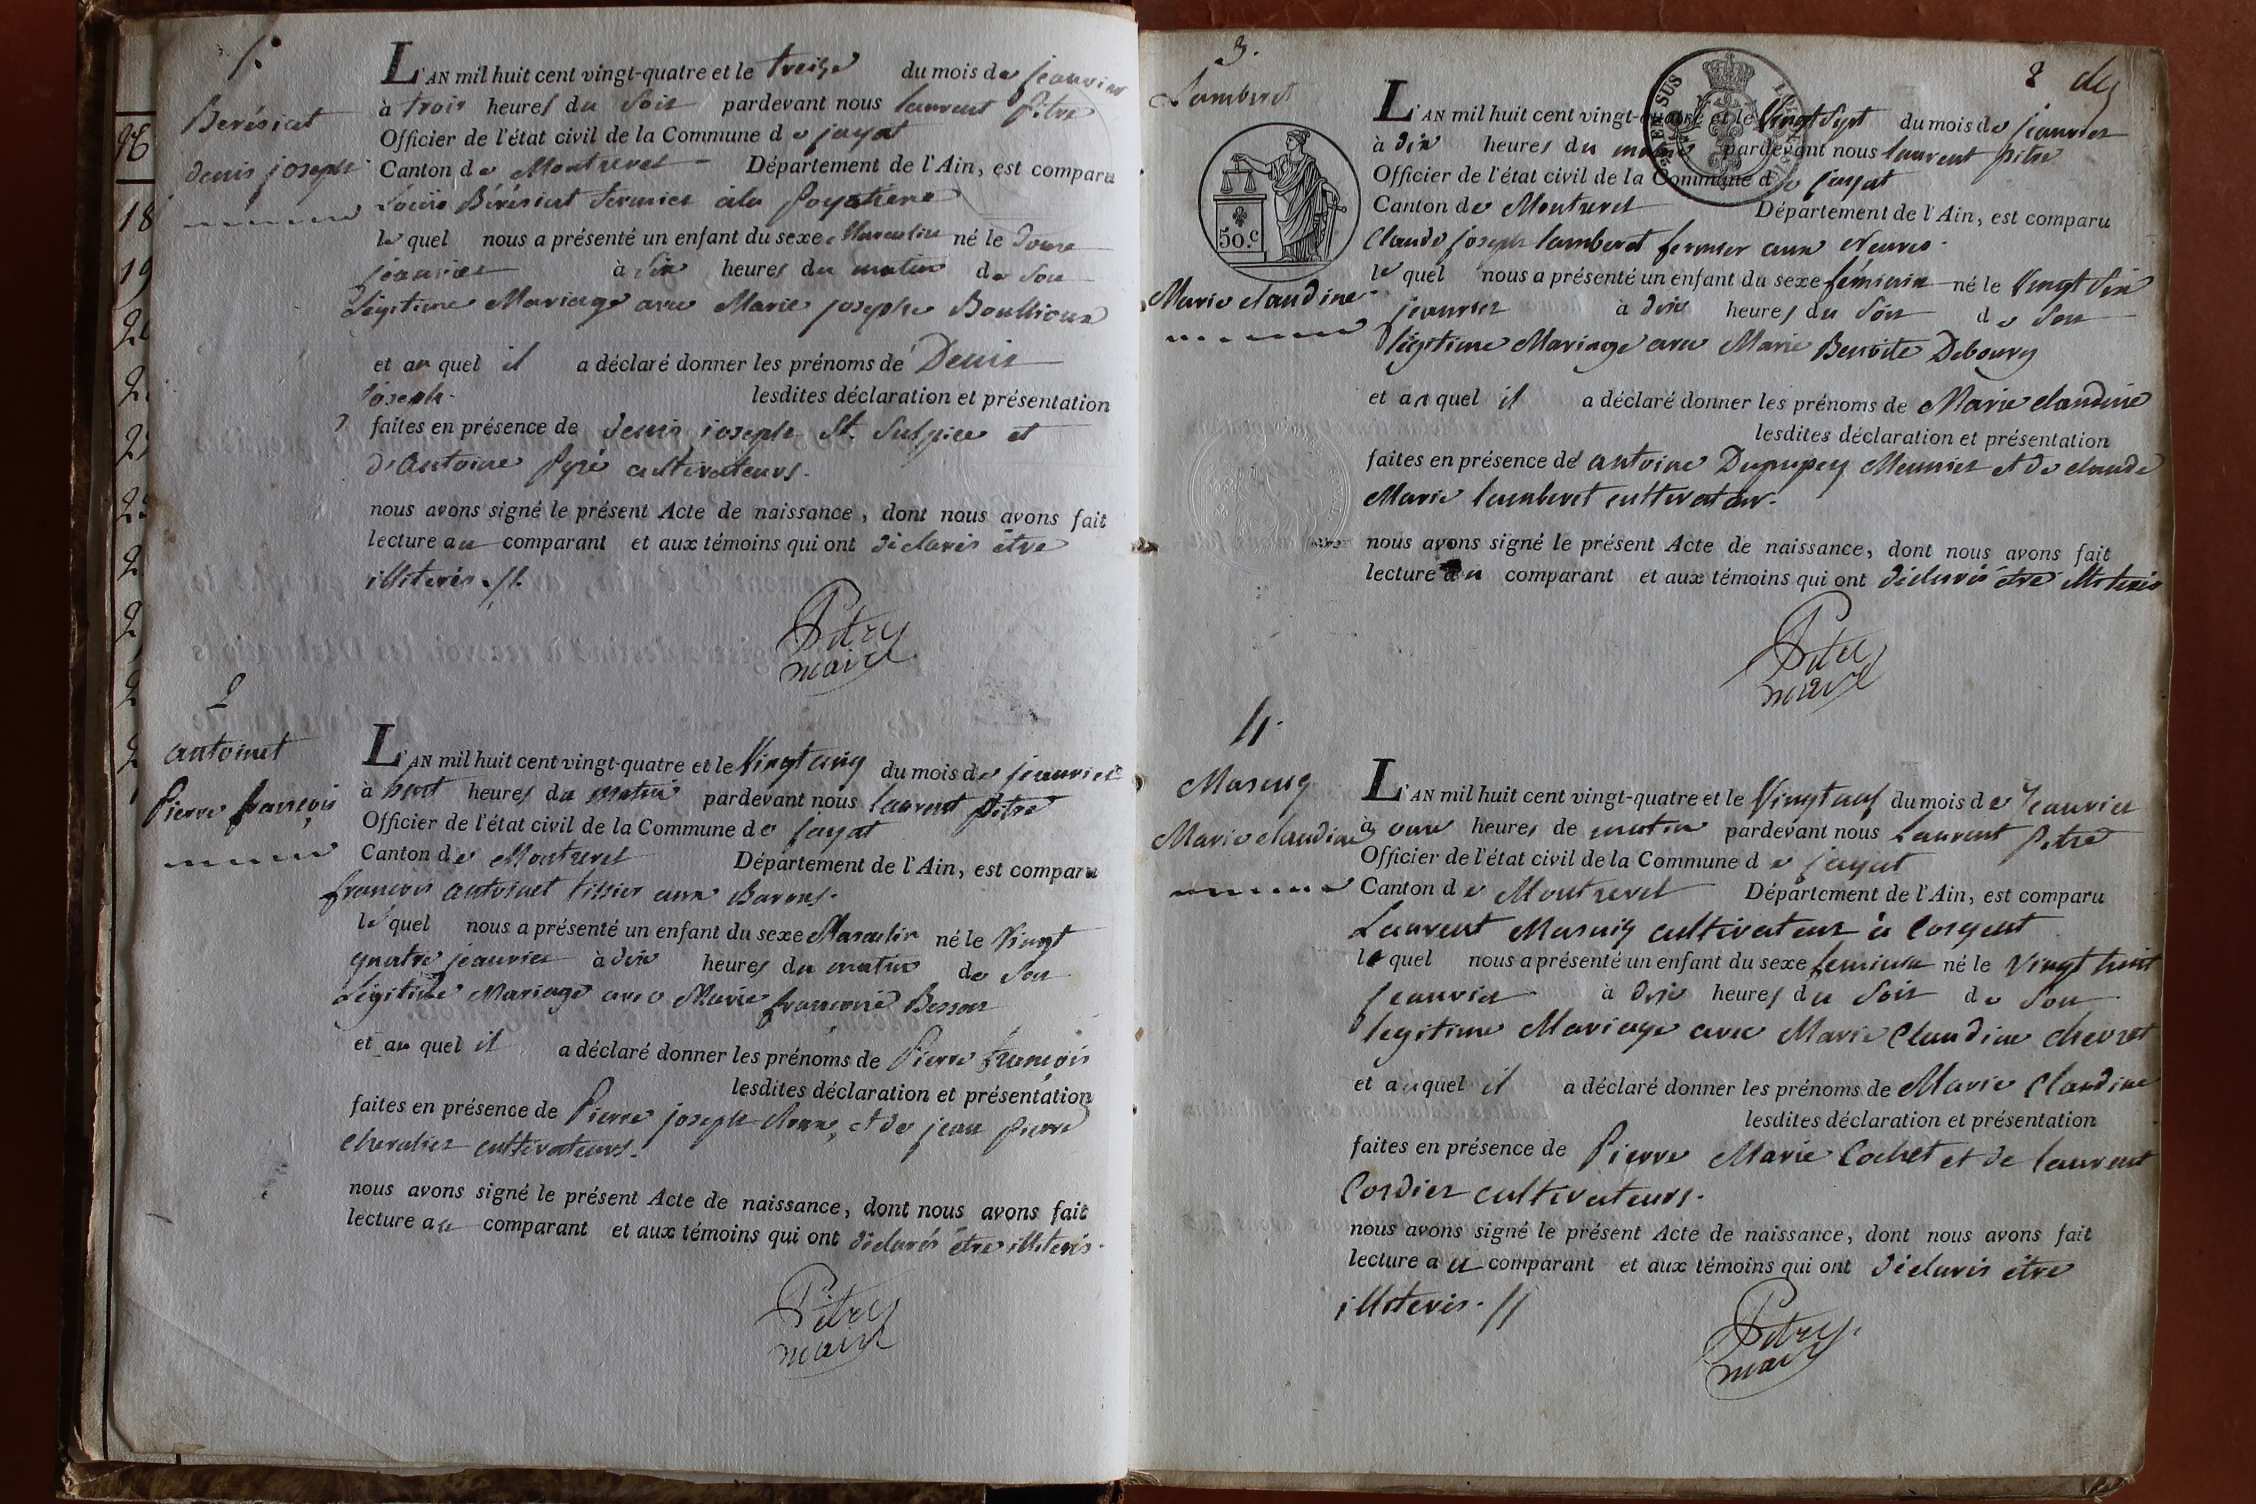 1.
Berésiat
denis joseph
L'AN mil huit cent vingt-quatre et le treize du mois de janvier
à trois heures du soir pardevant nous laurent Pitre
Officier de l'état civil de la Commune de jayat
Canton de Montrevel Département de l'Ain, est comparu
Louis Bérésiat fermier à la
le quel nous a présenté un enfant du sexe Masculin né le douze
janvier à six heures du matin de son
Légitime Mariage avec Marie josephe Boullioux
et au quel il a déclaré donner les prénoms de Denis
joseph. lesdites déclaration et présentation
faites en présence de denis joseph St. Sulpice et
d'Antoine Pyré cultivateurs.
nous avons signé le présent Acte de naissance, dont nous avons fait
lecture au comparant et aux témoins qui ont déclarés être
illiterés.
Pitre
maire
2
antoinet
Pierre françois
L'AN mil huit cent vingt-quatre et le Vingt cinq du mois de janvier
à huit heures du matin pardevant nous laurent Pitre
Officier de l'état civil de la Commune de jayat
Canton de Montrevel Département de l'Ain, est comparu
françois antoinet tissier aux Barons.
le quel nous a présenté un enfant du sexe Masculin né le Vingt
quatre janvier à dix heures du matin de son
Légitime Mariage avec Marie françoise Besson
et au quel il a déclaré donner les prénoms de Pierre françois
lesdites déclaration et présentation
faites en présence de Pierre joseph et de jean pierre
chevalier cultivateurs.
nous avons signé le présent Acte de naissance, dont nous avons fait
lecture au comparant et aux témoins qui ont déclarés être illiterés.
Pitre
maire
3.
Lamberet
50.c
Marie claudine
L'AN mil huit cent vingt-quatre et le Vingt Sept du mois de janvier
à dix heures du matin pardevant nous laurent pitre
Officier de l'état civil de la Commune de jayat
Canton de Montrevel Département de l'Ain, est comparu
Claude joseph lamberet fermier aux
le quel nous a présenté un enfant du sexe féminin né le Vingt Six
janvier à dix heures du Soir de son
légitime Mariage avec Marie Benoite Debourg
et au quel il a déclaré donner les prénoms de Marie claudine
lesdites déclaration et présentation
faites en présence de antoine Dupupey Meunier et de claude
Marie lamberet cultivateur.
nous avons signé le présent Acte de naissance, dont nous avons fait
lecture au comparant et aux témoins qui ont déclarés être illiterés
Pitre
maire
4.
Masuy
Marie claudine
L'AN mil huit cent vingt-quatre et le Vingt neuf du mois de Janvier
à onze heures de matin pardevant nous Laurent Pitre
Officier de l'état civil de la Commune de jayat
Canton de Montrevel Département de l'Ain, est comparu
Laurent Masuy cultivateur à Corgent
le quel nous a présenté un enfant du sexe feminin né le Vingt huit
Janvier à dix heures du Soir de Son
legitime Mariage avec Marie Claudine chevret
et au quel il a déclaré donner les prénoms de Marie Claudine
lesdites déclaration et présentation
faites en présence de Pierre Marie Cochet et de laurent
Cordier cultivateurs.
nous avons signé le présent Acte de naissance, dont nous avons fait
lecture au comparant et aux témoins qui ont déclarés être
illiterés.
Pitre
maire